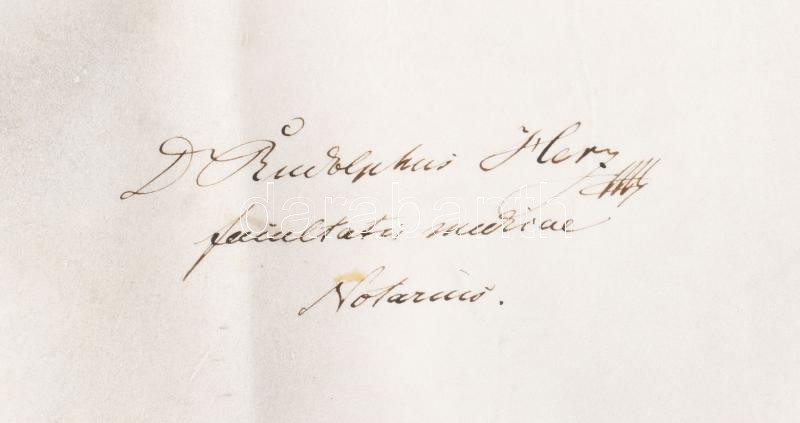 Dr Rudolphus Herz
facultatis medicae
Notarius.
darabanth